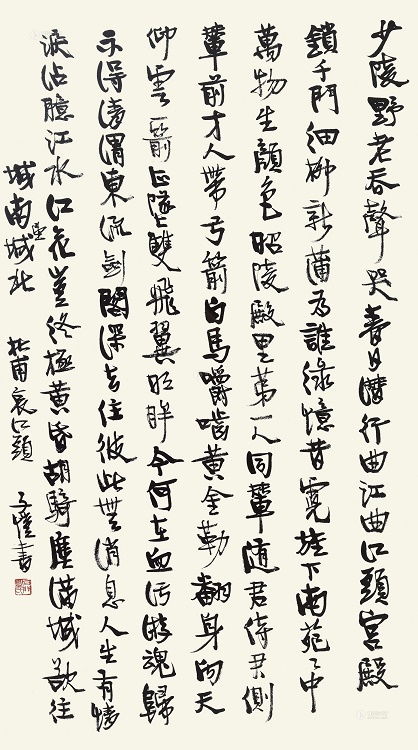 少陵野老吞聲哭春日潛行曲江曲江頭宮殿
鎖千門細柳新蒲為誰綠憶昔霓旌下南苑〻中
萬物生顏色昭陵殿里第一人同輦隨君侍君側
輦前才人帶弓箭白馬嚼嚙黃金勒翻身向天
仰雲一箭正墜雙飛翼明眸今何在血污游魂歸
不得清渭東流劍閣深去住彼此無消息人生有情
淚沾臆江水江花豈終極黃昏胡騎塵滿城欲往
城南望城北 杜甫哀江頭 子愷書